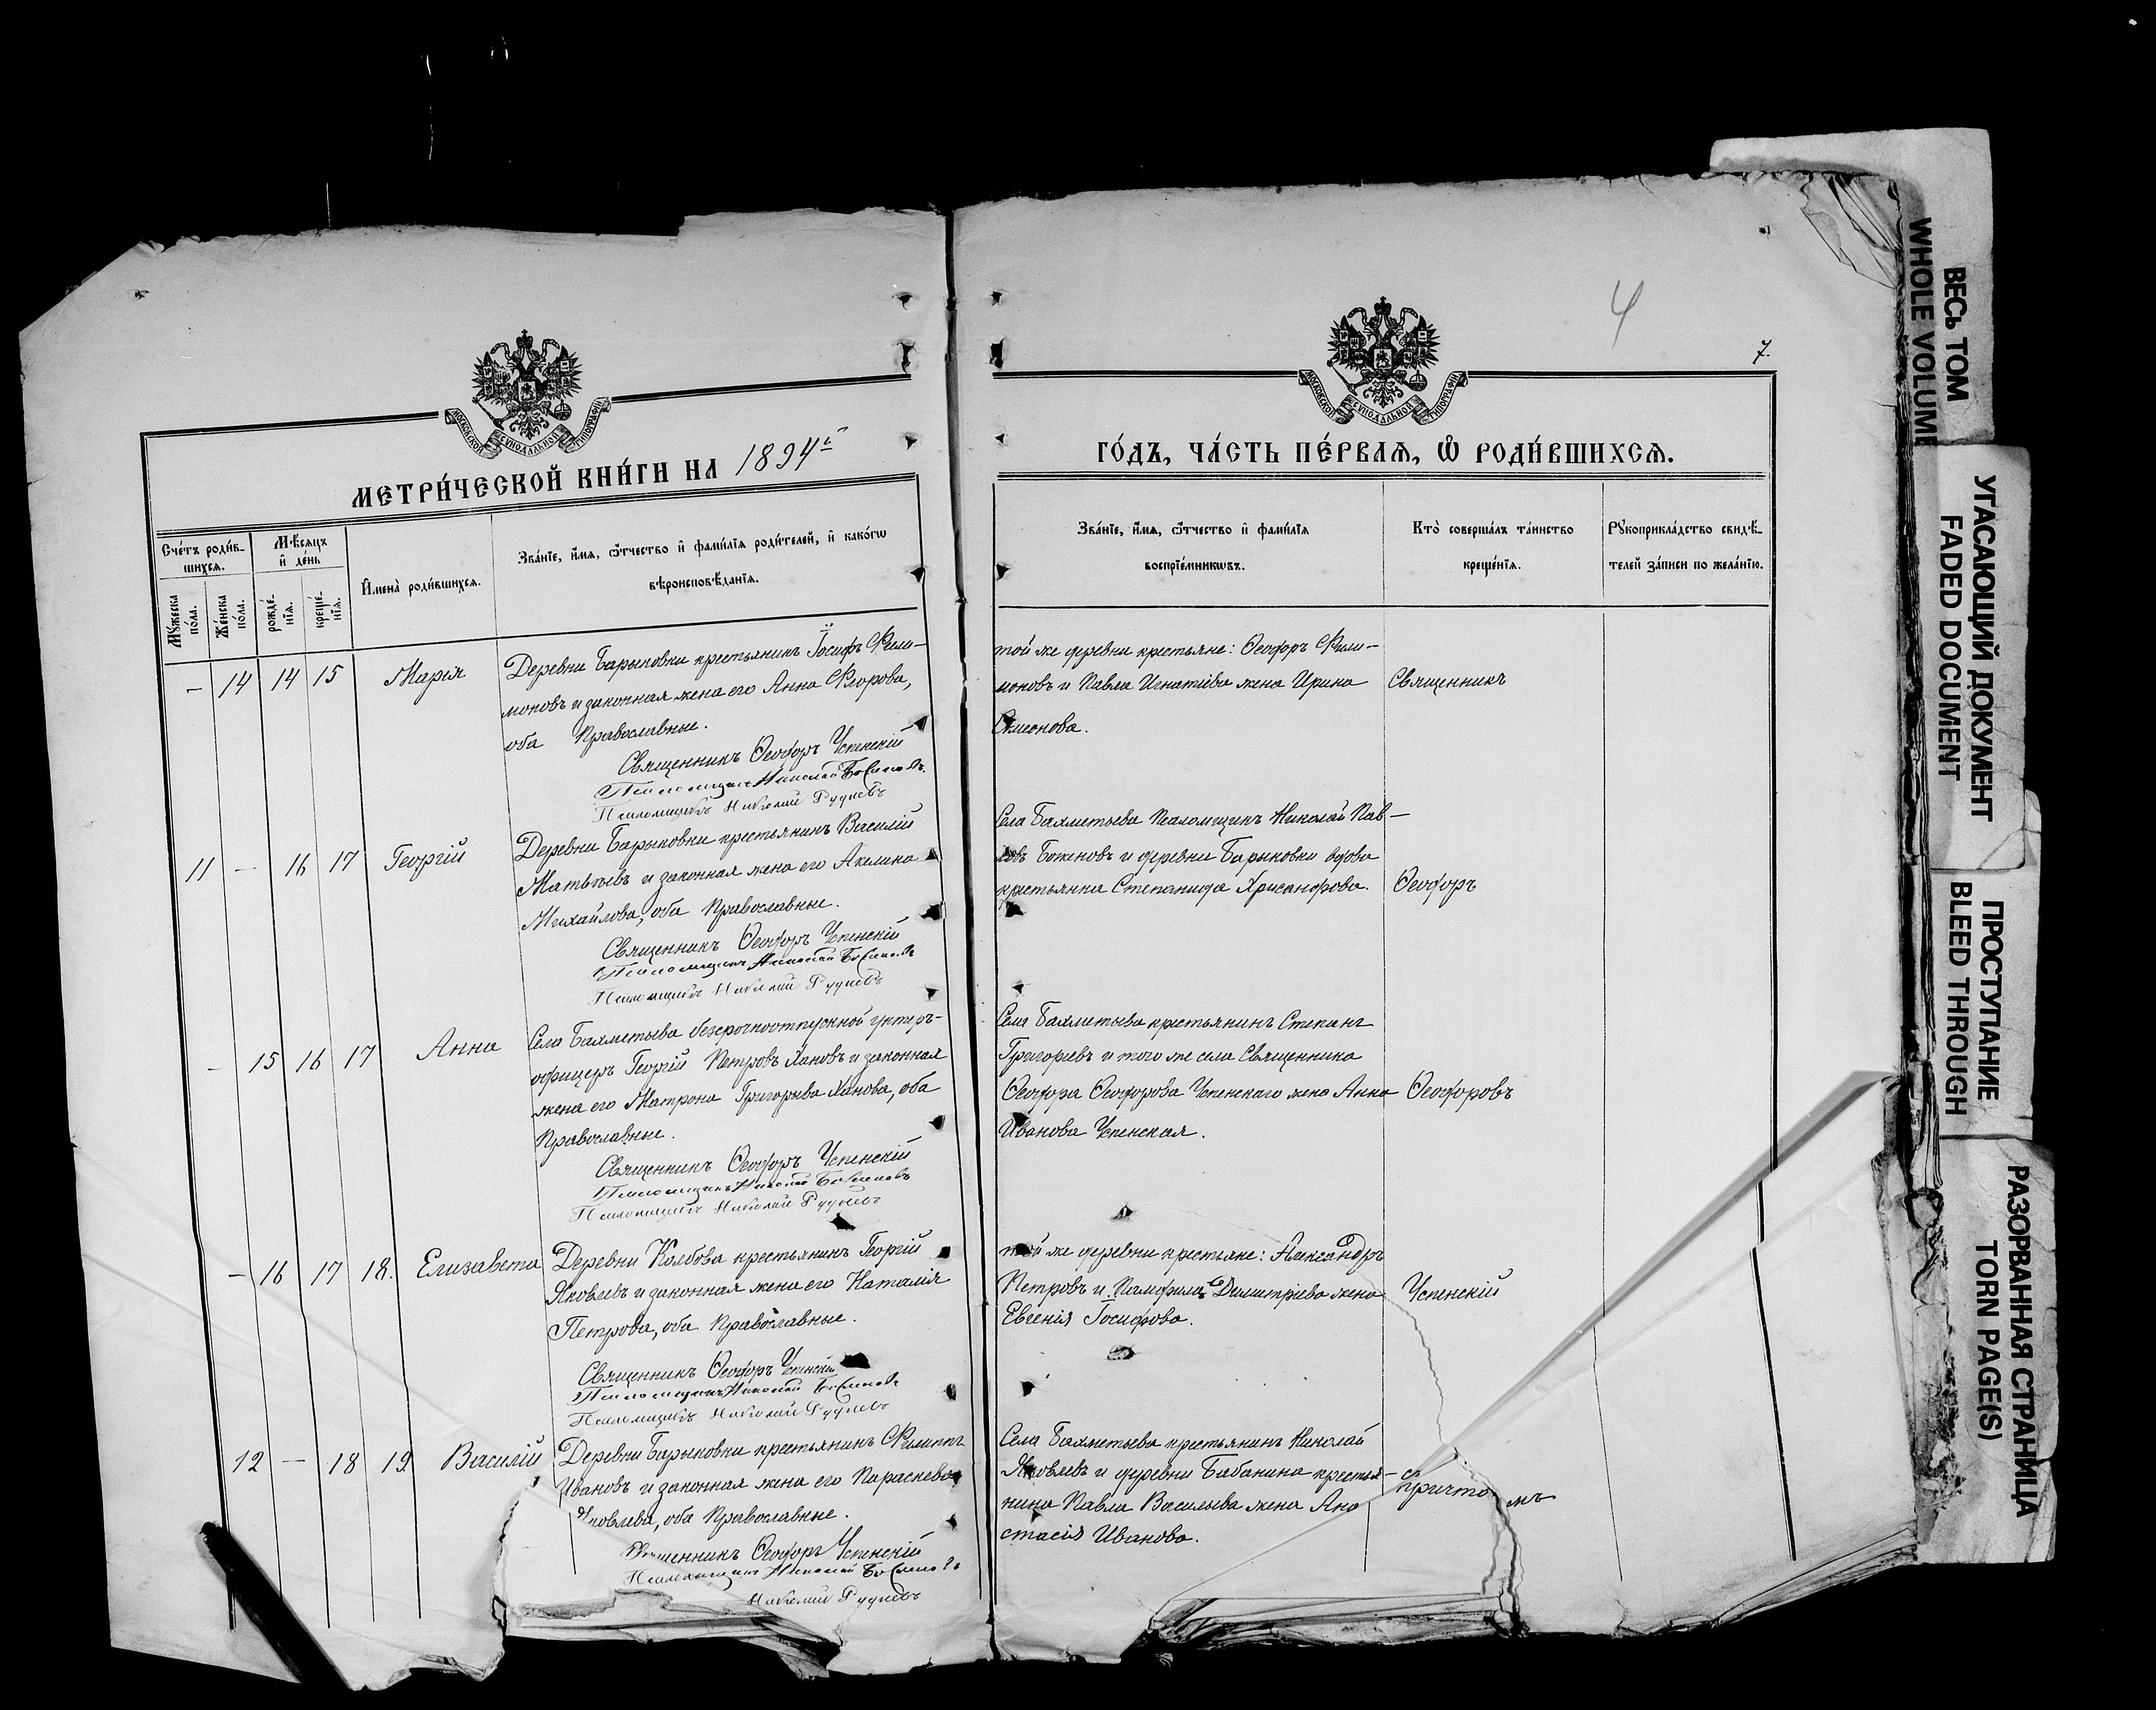 4
7.
МОСКОВСКОЙ СѴНОДАЛЬНОЙ ТИПОГРАФІИ
МОСКОВСКОЙ СѴНОДАЛЬНОЙ ТИПОГРАФІИ
МЕТРИ́ЧЕСКОЙ КНИ́ГИ НА 1894й
ГО́ДЪ, ЧА́СТЬ ПЕ́РВАѦ, Ѿ РОДИ́ВШИХСѦ.
Сче́тъ роди́в-
шихсѧ.
Мꙋ́жеска по́ла.
Же́нска по́ла.
Мѣ́сѧцъ
и҆ де́нь
рожде́-
нїѧ.
креще́-
нїѧ.
И҆мена̀ роди́вшихсѧ.
Зва́нїе, и҆́мѧ, ѻ҆́тчество и҆ фами́лїѧ роди́телей, и҆ како́гѡ
вѣроисповѣ́данїѧ.
Зва́нїе, и҆́мѧ, ѻ҆́тчество и҆ фами́лїѧ
воспрїе́мникѡвъ.
Кто̀ соверша́лъ та́инство
креще́нїѧ.
Рꙋкоприкла́дство свидѣ́-
телей за́писи по жела́нїю.
— 14 14 15 Марія
Деревни Барыковки крестьянинъ Іосифъ Фили-
моновъ и законная жена его Анна Ѳеорова,
оба Православные.
Священникъ Ѳеодоръ Успенскій
Псаломщикъ Николай Боженовъ.
Псаломщикъ Николай Рудневъ
той же деревни крестьяне: Ѳеодоръ Фили-
моновъ и Павла Игнатіева жена Ирина
Симонова.
Священникъ
11 — 16 17 Георгій
Деревни Барыковки крестьянинъ Василій
Матвѣевъ и законная жена его Акелина
Михайлова, оба Православные.
Священникъ Ѳеодоръ Успенскій
Псаломщикъ Николай Боженовъ
Псаломщикъ Николай Рудневъ
Села Бахметьева Псаломщикъ Николай Пав-
ловъ Боженовъ и деревни Барыковки вдова
крестьянка Степанида Хрисанфова.
Ѳеодоръ
- 15 16 17 Анна
Села Бахметьева безсрочноотпускной унтеръ-
офицеръ Георгій Петровъ Хановъ и законная
жена его Матрона Григорьева Ханова, оба
Православные.
Священникъ Ѳеодоръ Успенскій
Псаломщикъ Николай Боженовъ
Псаломщикъ Николай Рудневъ
Села Бахметьева крестьянинъ Степанъ
Григорьевъ и того же села Священника
Ѳеодора Ѳеодорова Успенскаго жена Анна
Иванова Успенская.
Ѳеодоровъ
— 16 17 18. Елизавета
Деревни Колбова крестьянинъ Георгій
Яковлевъ и законная жена его Наталія
Петрова, оба Православные.
Священникъ Ѳеодоръ Успенскій
Псаломщикъ Николай Боженовъ
Псаломщикъ Николай Рудневъ
той же деревни крестьяне: Александръ
Петровъ и Памфила Димитріева жена
Евгенія Іосифова.
Успенскій
12 — 18 19. Василій
Деревни Барыковки крестьянинъ Филиппъ
Ивановъ и законная жена его Параскева
Яковлева, оба Православные.
Священникъ Ѳеодоръ Успенскій
Псаломщикъ Николай Боженовъ
Николай Рудневъ
Села Бахметьева крестьянинъ Николай
Яковлевъ и деревни Бабанина крестья-
нина Павла Васильева жена Ана
стасія Иванова.
съ
причтомъ
ВЕСЬ ТОМ
WHOLE VOLUME
УГАСАЮЩИЙ ДОКУМЕНТ
FADED DOCUMENT
ПРОСТУПАНИЕ
BLEED THROUGH
РАЗОРВАННАЯ СТРАНИЦА
TORN PAGE(S)